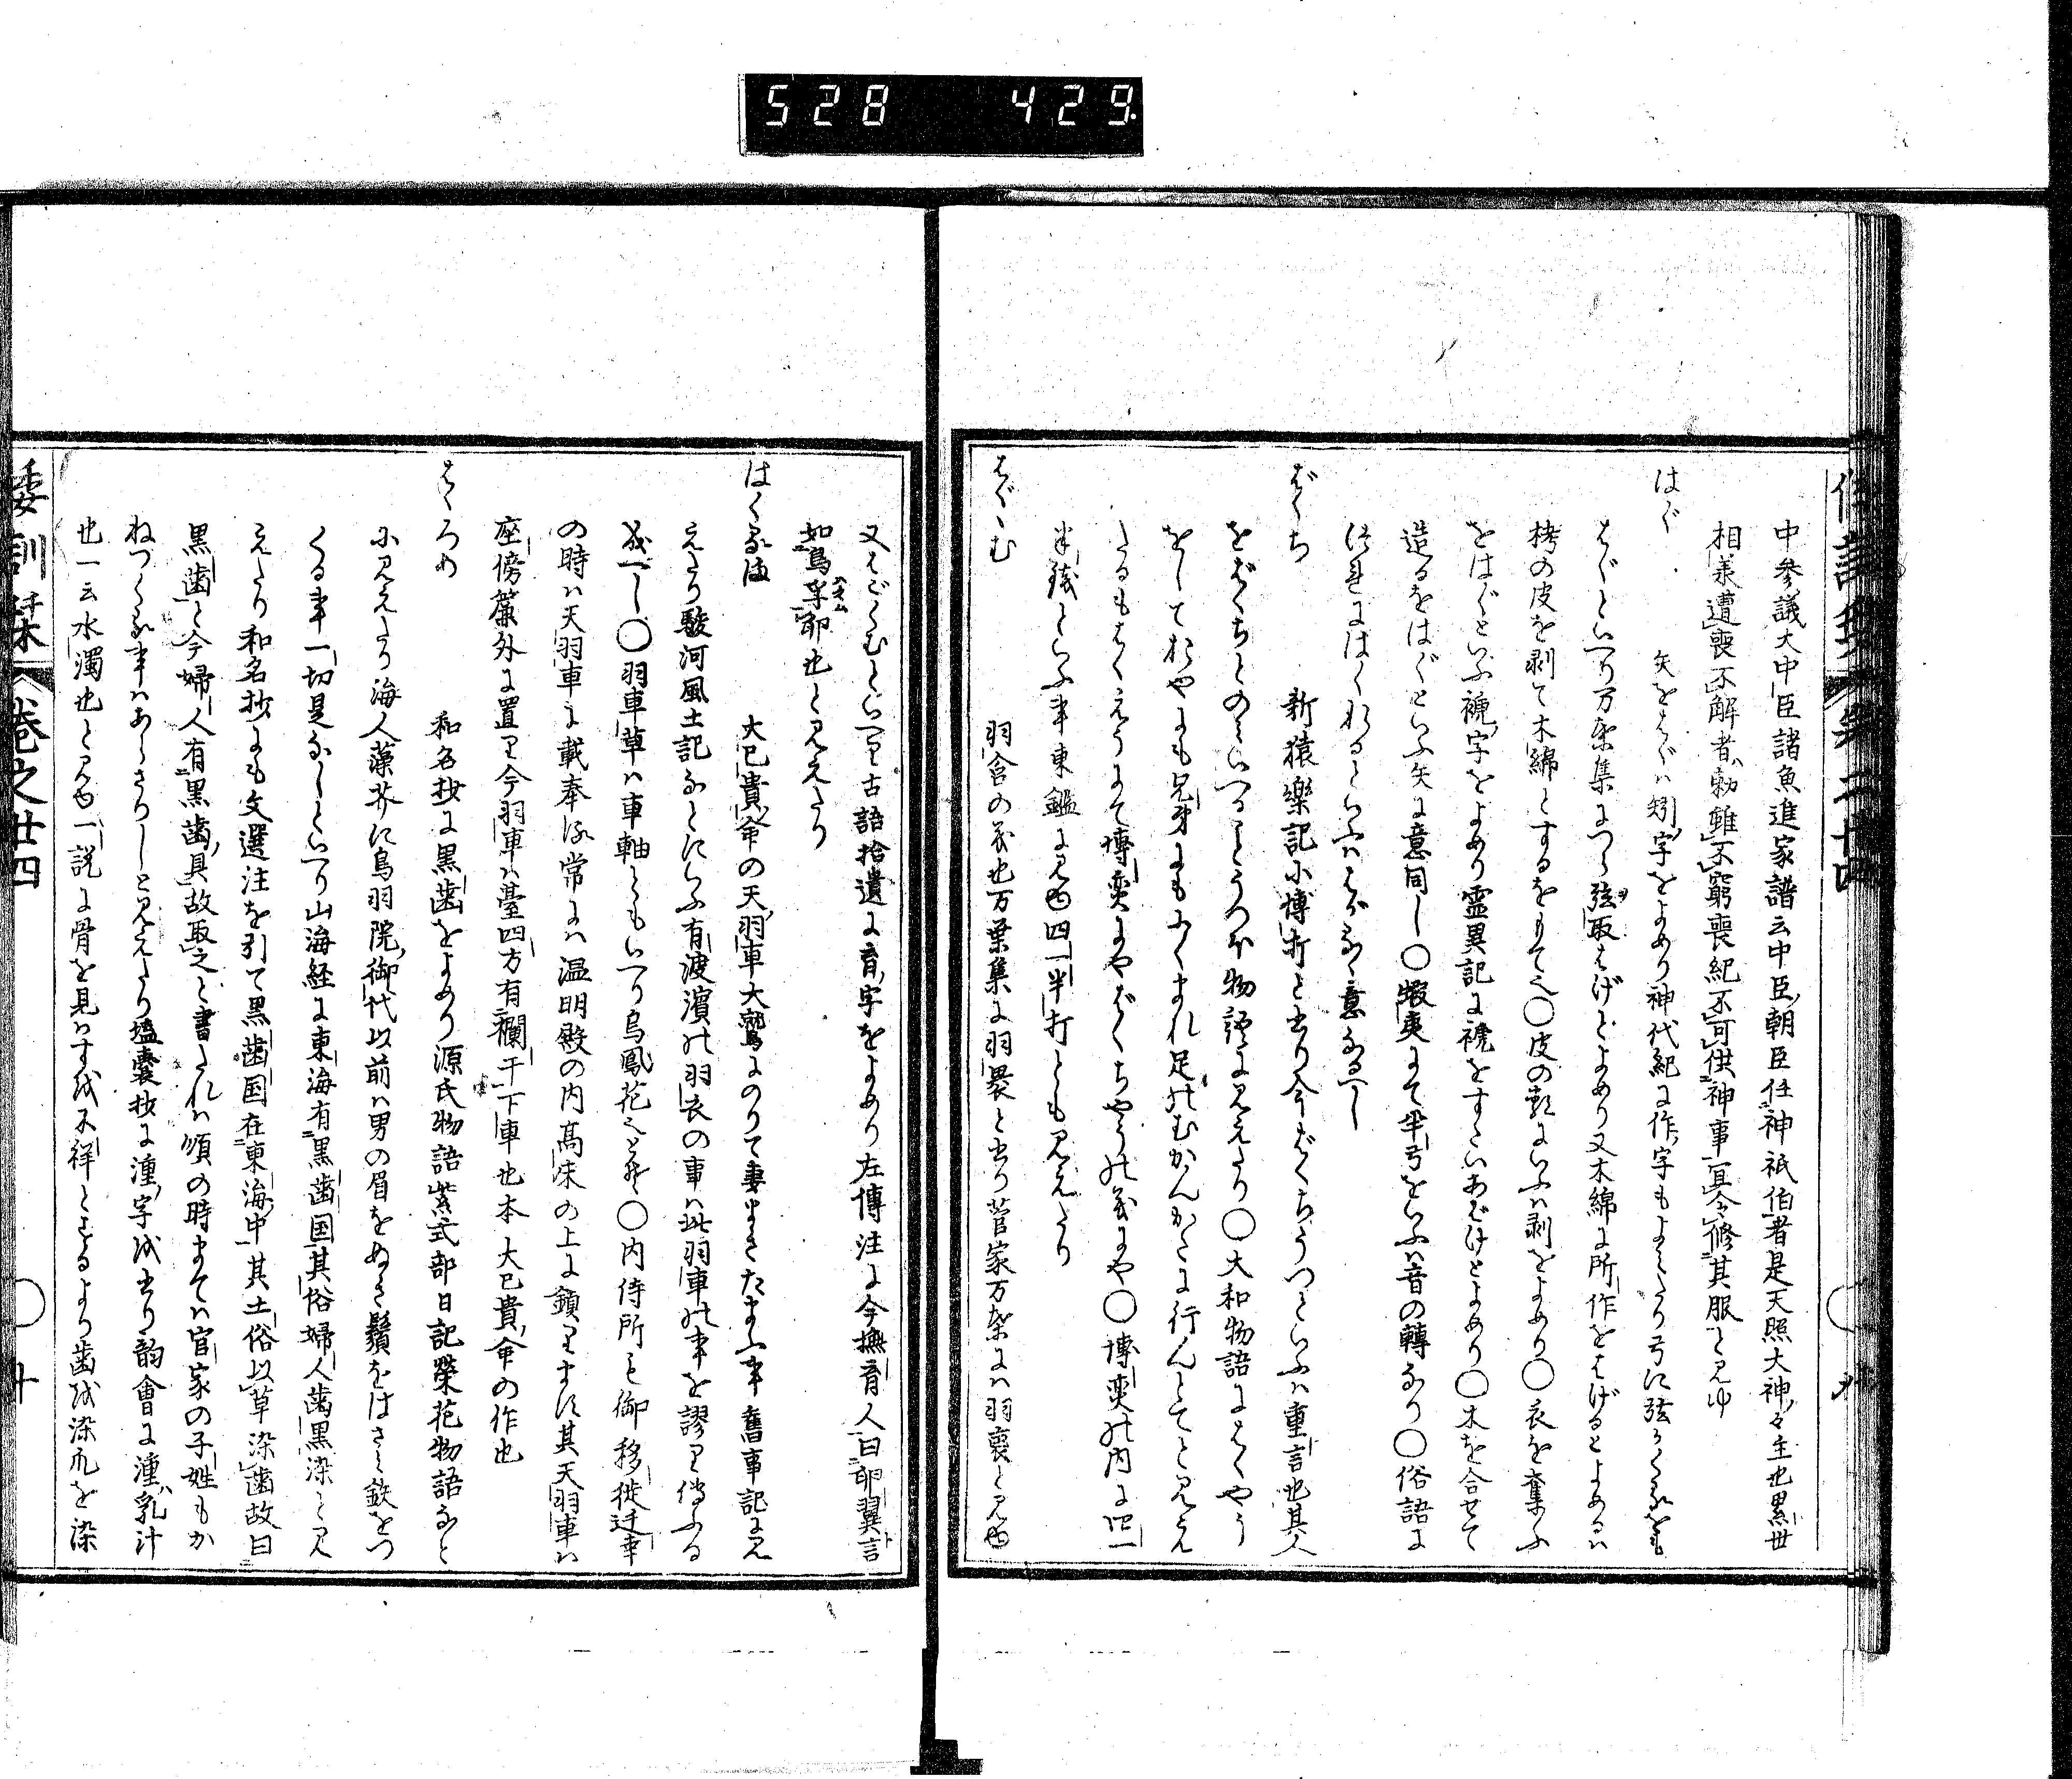 528 429
中参議大中臣諸魚進家譜云中臣朝臣任神祇伯者是天照大神々主也累世
相義遭喪不解者勅雖不窮喪紀不可供神事冝令修其服と見ゆ
はぐ 矢をはぐハ矧字をよめり神代紀に作字もよみたり弓に弦かくるをも
はぐといへり万葉集につら弦取はげとよめり又木綿に所作をはげるとよめるハ
栲の皮を剥て木綿とするをもて也〇皮の類にいふハ剥をよめり〇衣を奪ふ
をはぐといふ褫字をよめり霊異記に褫をすゝいあばけとよめり〇木を合せて
造るをはぐといふ矢に意同し〇蝦夷にて半弓をいふハ音の轉なり〇俗語に
はくれるといふハ意なるへし
ばくち 新猿樂記に博打と書り今ばくちうつといふハ重言也其人
をばくちとのみいへることうつほ物語に見えたり〇大和物語にはくやう
をしておやにも兄弟にもにくまれ足のむかんかたに行んとてと見え
たるもはくえうにて博奕にやばくちやうの義にや〇博奕の内に四一
半銭といふ事東鑑に見ゆ四一半打とも見えたり
はぐゝむ 羽含の義也万葉集に羽褁と書り菅家万葉にハ羽裹と見ゆ
又はごくむといへり古語拾遺に育字をよめり左傳注に今撫育人曰卵翼言
如鳥孚卵也と見えたり
はくるま 大已貴命の天羽車大鷲にのりて妻まきたまふ事舊事記に見
えたり駿河風土記なとにいふ有渡濱の羽衣の事ハ此羽車の事を謬り傳ふる
成へし〇羽車草ハ車軸ともいへり烏鳳花也とそ〇内侍所を御移徙迁幸
の時ハ天羽車に載奉る常にハ温明殿の内髙床の上に鎮ります其天羽車ハ
座傍簾外に置り今羽車ハ臺四方有欄干下車也本大已貴命の作也
はくろめ 和名抄に黒歯をよめり源氏物語紫式部日記榮花物語なと
に見えたり海人藻芥に鳥羽院御代以前ハ男の眉をぬき鬚をはさみ鉄をつ
くる事一切是なしといへり山海経に東海有黒歯国其俗婦人歯黒染と見
えたり和名抄にも文選注を引て黒歯国在東海中其土俗以草染歯故曰
黒歯と今婦人有黒歯具故取之と書たれハ順の時まてハ官家の子姓もか
ねつくる事ハあらさりしと見えたり壒嚢抄に湩字を書り韵會に湩乳汁
也一云水濁也と見ゆ一説に骨を見ハすを不祥とするより歯を染爪を染
倭訓栞 巻之廿四 〇十